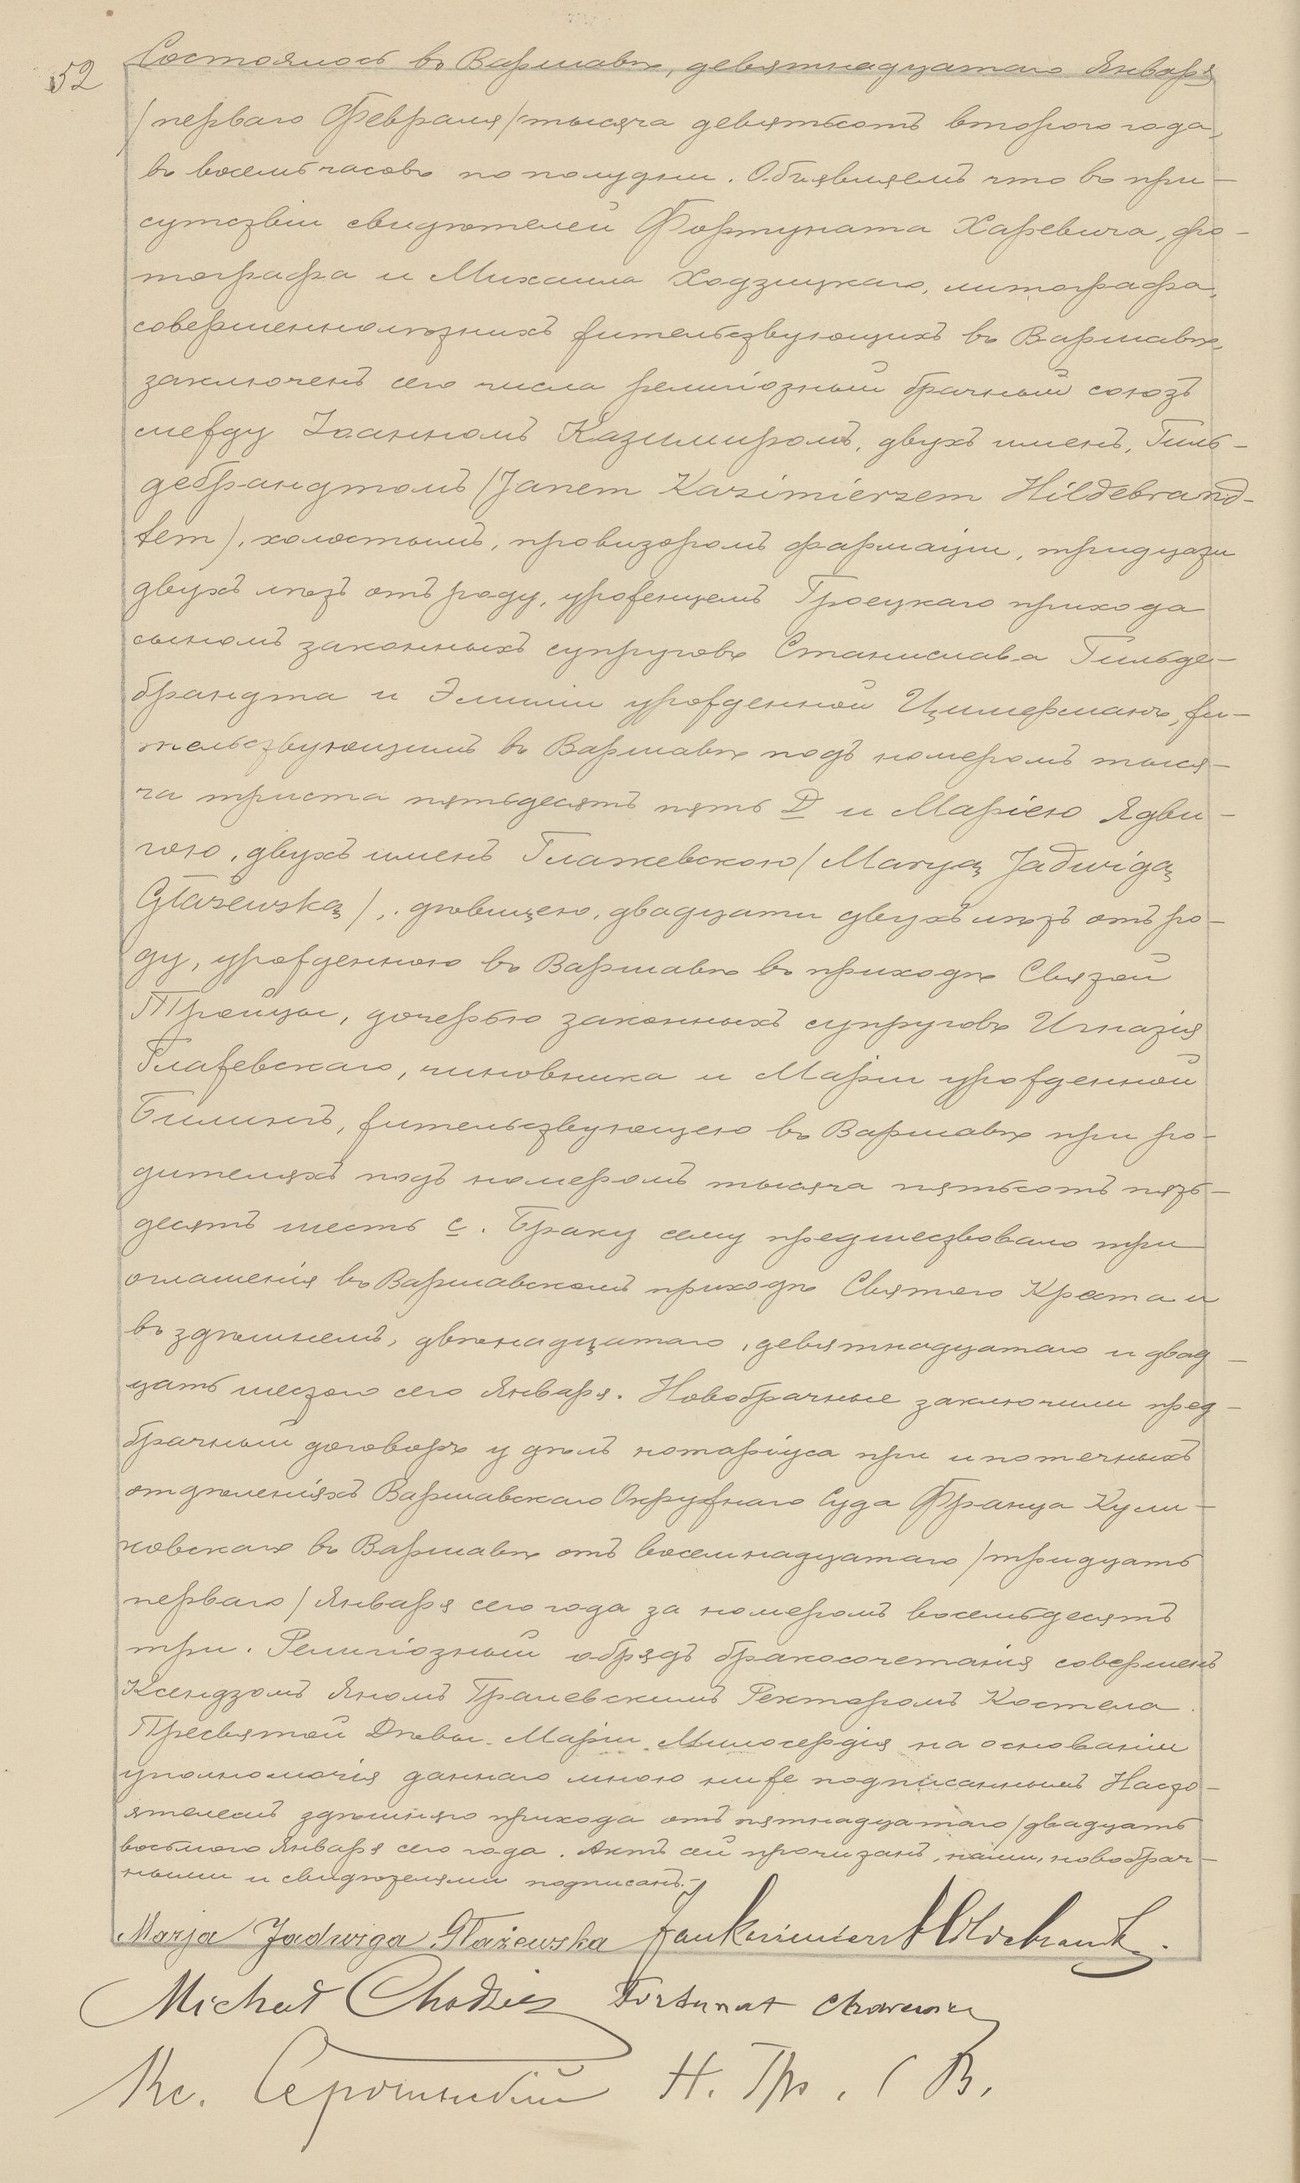 52
Состоялось въ Варшавѣ, девятнадцатаго Января
/перваго Февраля/ тысяча девятьсотъ второго года,
въ восемь часовъ по полудни. Объявляемъ что въ при-
сутствіи свидѣтелей Фортуната Харевича, фо-
тографа и Михаила Ходзицкаго, литографа,
совершеннолѣтнихъ жительствующихъ въ Варшавѣ,
заключенъ сего числа религіозный брачный союзъ
между Іоанномъ Казимиромъ, двухъ именъ, Гиль-
дебрандтомъ /Janem Kazimierzem Hildebrand-
tem), холостымъ, провизоромъ фармаціи, тридцати
двухъ лѣтъ отъ роду, уроженцемъ Гроецкаго прихода
сыномъ законныхъ супруговъ Станислава Гильде-
брандта и Эмиліи урожденной Цимерманъ, жи-
тельствующимъ въ Варшавѣ подъ номеромъ тыся-
ча триста пятьдесятъ пять D и Маріею Ядви-
гою, двухъ именъ Глажевскою /Maryą Jadwigą
Głażewską/, дѣвицею, двадцати двухъ лѣтъ отъ ро-
ду, урожденною въ Варшавѣ въ приходѣ Святой
Тройцы, дочерью законныхъ супруговъ Игнатія
Глажевскаго, чиновника и Маріи урожденной
Билингъ, жительствующею въ Варшавѣ при ро-
дителяхъ подъ номеромъ тысяча пятьсотъ пять-
десятъ шесть с. Браку сему предшествовало три
оглашенія въ Варшавскомъ приходѣ Святого Креста и
въ здѣшнемъ, двѣнадцатаго, девятнадцатаго и двад-
цать шестого сего Января. Новобрачные заключили пред-
брачный договоръ у дѣлъ нотаріуса при ипотечныхъ
отдѣленіяхъ Варшавскаго Окружнаго Суда Франца Кули-
ковскаго въ Варшавѣ отъ восемнадцатаго /тридцать
перваго/ Января сего года за номеромъ восемьдесятъ
три. Религіозный обрядъ бракосочетанія совершенъ
Ксендзомъ Яномъ Гралевскимъ Ректоромъ Костела
Пресвятой Дѣвы Маріи Милосердія на основаніи
уполномочія даннаго мною ниже подписаннымъ Насто-
ятелемъ здѣшняго прихода отъ пятнадцатаго /двадцать
восьмого Января сего года. Актъ сей прочитанъ, нами, новобрач-
ными и свидѣтелями подписанъ.
Marja Jadwiga Głażewska Jan Kazimierz Hildebrandt.
Michał Chodzic Fortunat Charewicz
Кс. Н. Пр. С В.